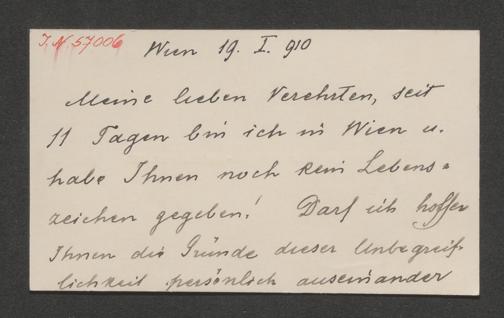 J.N 57006
Wien 19. I. 910
Meine lieben Verehrten, seit
11 Tagen bin ich in Wien u.
habe Ihnen noch kein Lebens=
zeichen gegeben! Darf ich hoffen
Ihnen die Gründe dieser Unbegreif=
lichkeit persönlich auseinander